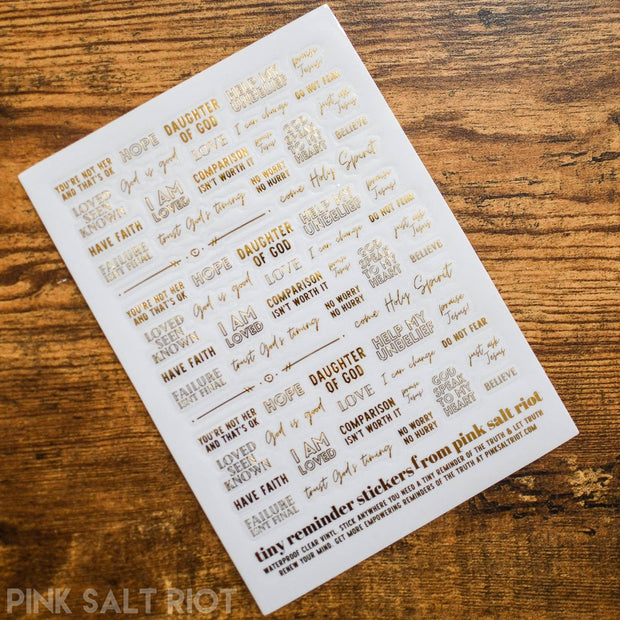 YOU'RE NOT HER
AND THAT'S OK
HOPE
DAUGHTER
OF GOD
HELP MY
UNBELIEF
Jesus
LOVED
SEEN
KNOWN
God is good
LOVE
I can change
DO NOT FEAR
I AM
LOVED
COMPARISON
ISN'T WORTH IT
GOD
SPEAK
TO MY
HEART
just ask
Jesus
HAVE FAITH
NO WORRY
NO HURRY
BELIEVE
FAILURE
ISN'T FINAL
trust God's timing
come Holy Spirit
YOU'RE NOT HER
AND THAT'S OK
HOPE
DAUGHTER
OF GOD
HELP MY
UNBELIEF
Jesus
LOVED
SEEN
KNOWN
God is good
LOVE
I can change
DO NOT FEAR
I AM
LOVED
COMPARISON
ISN'T WORTH IT
GOD
SPEAK
TO MY
HEART
just ask
Jesus
HAVE FAITH
NO WORRY
NO HURRY
BELIEVE
FAILURE
ISN'T FINAL
trust God's timing
come Holy Spirit
YOU'RE NOT HER
AND THAT'S OK
HOPE
DAUGHTER
OF GOD
HELP MY
UNBELIEF
Jesus
LOVED
SEEN
KNOWN
God is good
LOVE
I can change
DO NOT FEAR
I AM
LOVED
COMPARISON
ISN'T WORTH IT
GOD
SPEAK
TO MY
HEART
just ask
Jesus
HAVE FAITH
NO WORRY
NO HURRY
BELIEVE
FAILURE
ISN'T FINAL
trust God's timing
tiny reminder stickers from pink salt riot
WATERPROOF CLEAR VINYL. STICK ANYWHERE YOU NEED A TINY REMINDER OF THE TRUTH & LET TRUTH
RENEW YOUR MIND. GET MORE EMPOWERING REMINDERS OF THE TRUTH AT PINKSALTRIOT.COM
PINK SALT RIOT